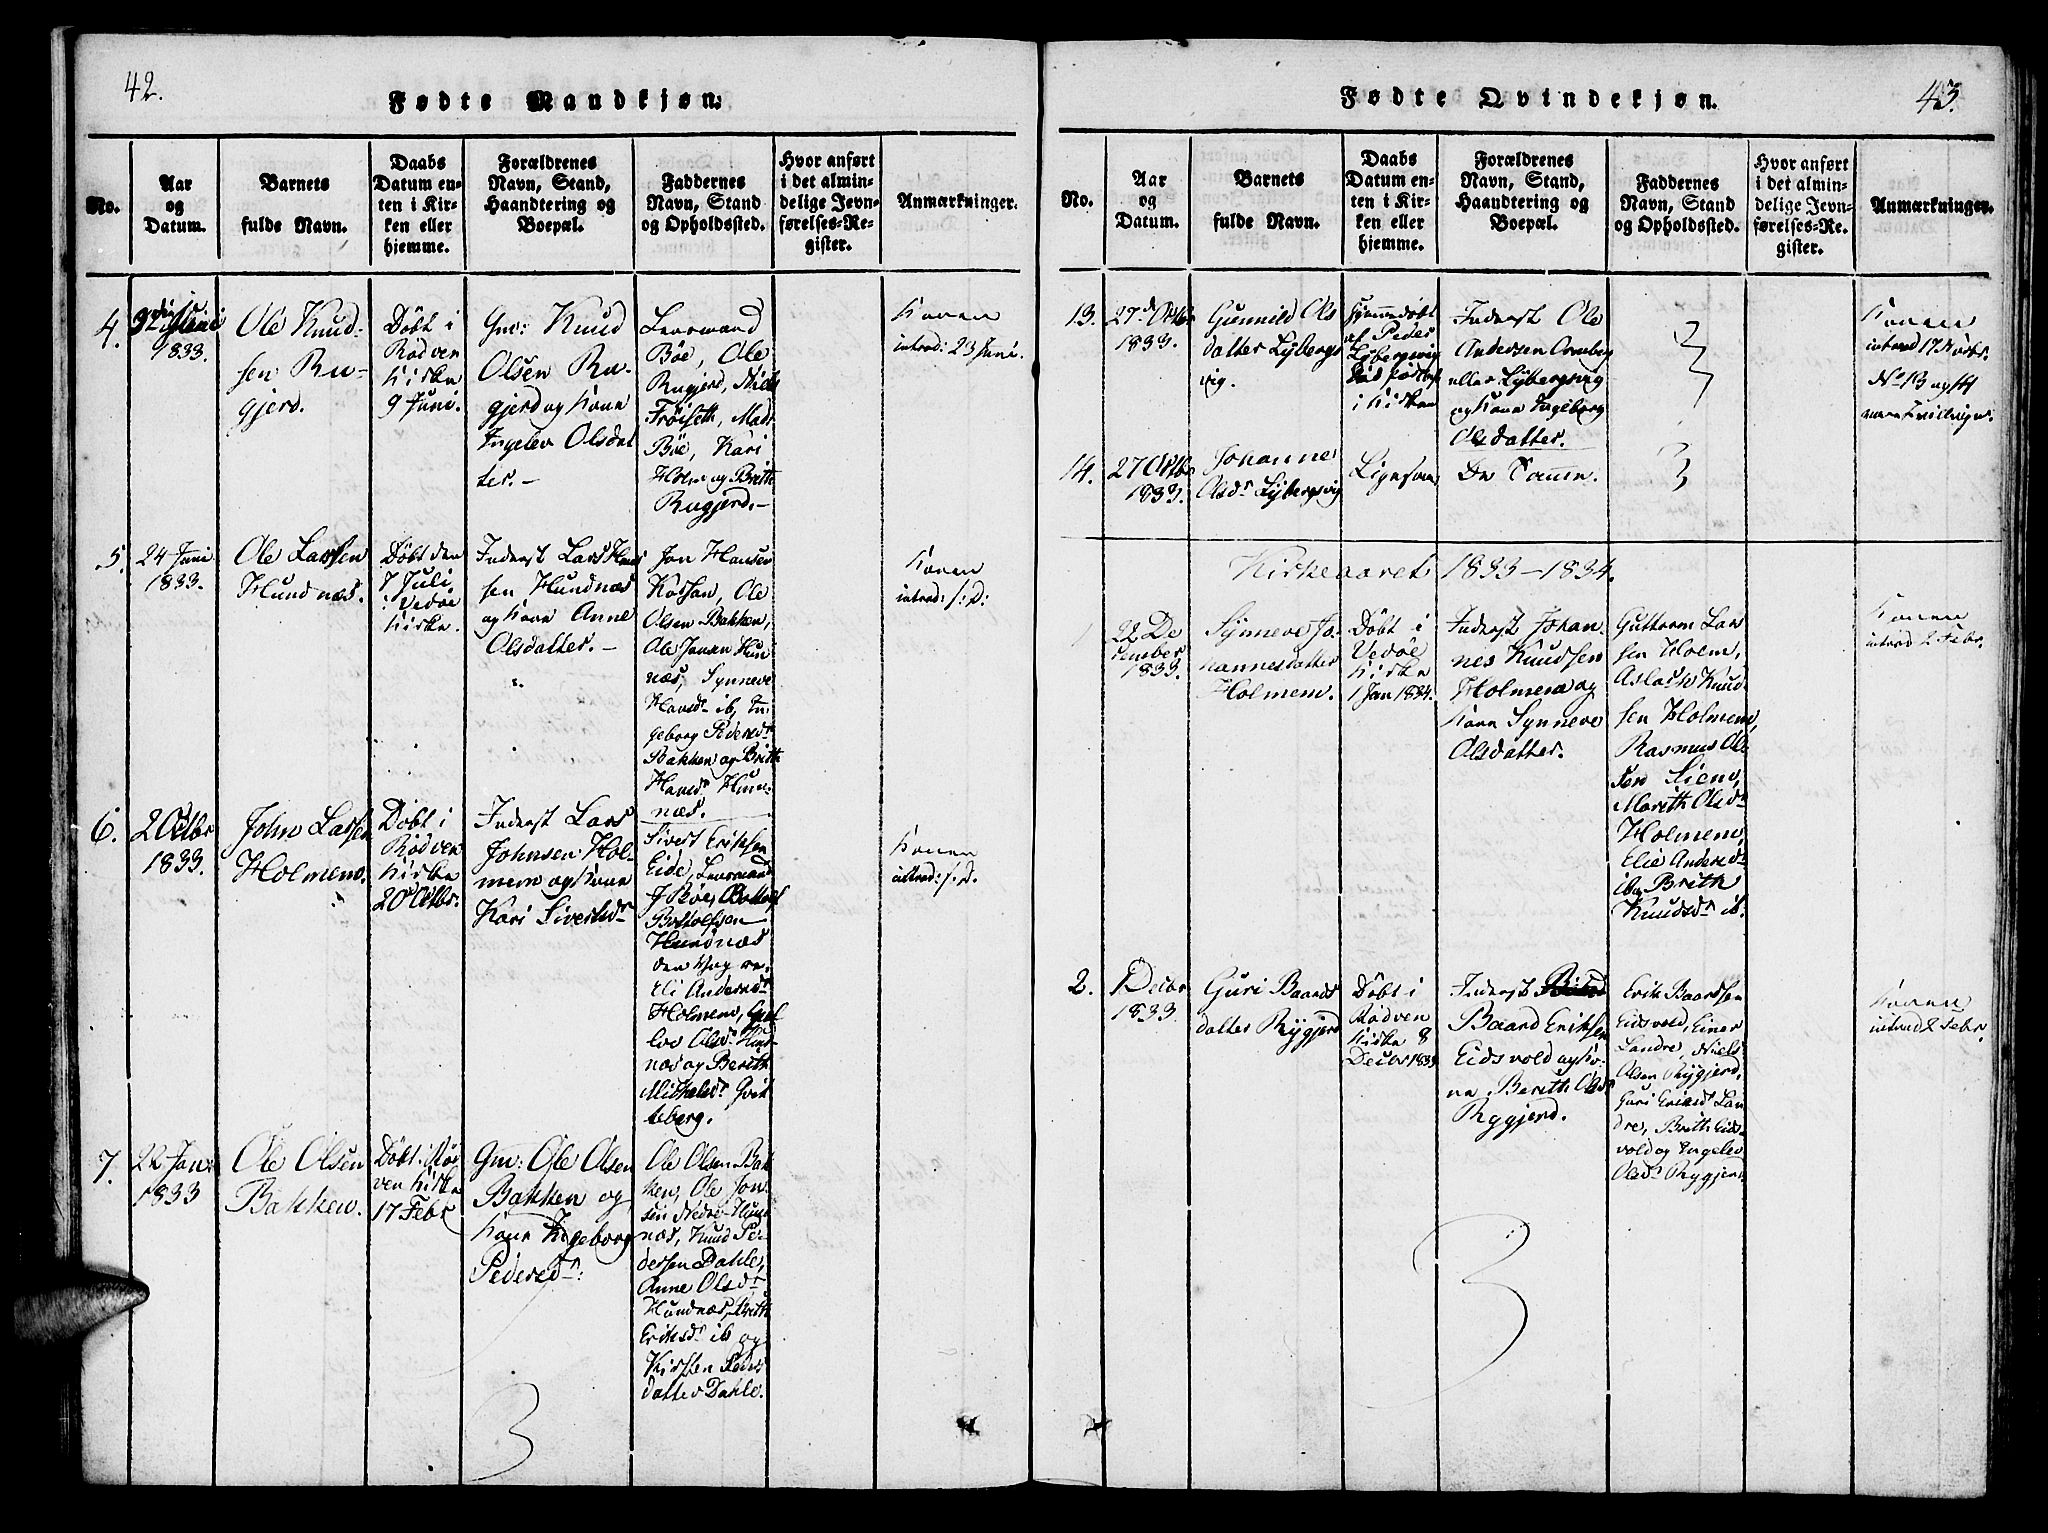 42.
Fødte Mandkjøn.
No.
Aar
og
Datum.
Barnets
fulde Navn.
Daabs
Datum en-
ten i Kir-
ken eller
hjemme.
Forældrenes
Navn, Stand,
Haandtering og
Boepæl.
Faddernes
Navn, Stand
og Opholdssted.
Hvor anført
i det almin-
delige Jevn-
førelses-Re-
gister.
Anmærkninger.
4.
Juni
1833.
Ole Knud-
sen Ru-
gjerd.
Döbt i
Rödven
Kirke
9 Juni.
Gm: Knud
Olsen Ru-
gjerd og Kone
Ingelev Olsdat
ter.-
Lensmand
Böe, Ole
Rugjerd, Niels
Fröiseth, Mad:
Böe, Kari
Holm og Brith
Rugjerd.-
Konen
introd: 23 Juni.
5.
24 Juni
1833.
Ole Larsen
Hundnæs.
Döbt den
7 Juli
i Vedöe
Kirke.
Inderst Lars Hans
sen Hundnæs
og Kone Anne
Olsdatter.-
Jon Hansen
Ole
Olsen Bakken,
Ole Jonsen Hun
næs, Synneve
Hansdr ib, In
geborg Pedersdr
Bakken og Brith
Hansdr Hun-
næs.
Konen
introd: s: D:
6.
2 Octbr
1833.
John Larsen
Holmem.
Döbt i
Rödven
Kirke
20 Octbr.
Inderst Lars
Johnsen Hol-
mem og Kone
Kari Sivertsdr
Sivert Eriksen
Eide, Lensmand
J Böe, Bottolf
Bottolfsen
Hundnæs
den
Eli Andersdr
Holmem,
Olsdr Hund
næs og Berith
Mikkelsdr Qvit
teberg.
Konen
introd: s: D.
7.
22 Jan:
1833
Ole Olsen
Bakken.
Döbt i Röd
ven Kirke
17 Febr
Gm: Ole Olsen
Bakken og
Kone Ingeborg
Pedersdr:
Ole Olsen Bak
ken, Ole Jon-
sen Nedre-Hund
næs, Knud Pe-
dersen Dahle,
Anne Olsdr
Hundnæs, Brith
Eriksdr ib og
Kirsten Peders
datter Dahle.
43.
Fødte Qvindekjøn.
No.
Aar
og
Datum.
Barnets
fulde Navn.
Daabs
Datum en-
ten i Kir-
ken eller
hjemme.
Forældrenes
Navn, Stand,
Haandtering og
Boepæl.
Faddernes
Navn, Stand
og Opholdssted.
Hvor anført
i det almin-
delige Jevn-
førelses-Re-
gister.
Anmærkninger.
13.
27d Octbr
1833.
Gunnild Ols
datter Lybergs
vig.
Hjemmedöbt
af Peder
Lybergsvig
i Kirken
Inderst Ole
Andersen
eller Lybergsvig
og Kone Ingeborg
Olsdatter.
Konen
introd 17 Novbr.
No 13 og 14
vare Tvillinger.
14.
27 Octbr
1833.
Johanne
Olsdr Lybergsvig
Ligesom
De Samme.
Kirkeaaret 1833-1834.
22 De
cember
1833.
Synneve Jo-
hannesdatter
Holmem.
Döbt i
Vedöe
Kirke
1 Jan 1834.
Inderst Johan-
nes Knudsen
Holmem og
Kone Synneve
Olsdatter.
Guttorm Lar
sen Holem,
Aslach Knud-
sen Holmem,
Rasmus Ol-
sen
Marith Olsdr
Holmem,
Elie Andersdr
ib og Brith
Knudsdr ib.
Konen
introd 2 Febr.
2.
1 Decbr
1833
Guri Baards
datter Rygjerd
Döbt i
Rödven
Kirke 8
Decbr 1833
Inderst
Baard Eriksen
Eidsvold og Ko-
ne Berith Olsdr
Ryggjerd.
Erik Baardsen
Eidsvold, Einer
Landre, Niels
Olsen Rygjerd,
Guri Eriksdr Lan
dre, Brith Eids-
vold og Ingelev
Olsdr Rygjerd
Konen
introd 2 Febr.